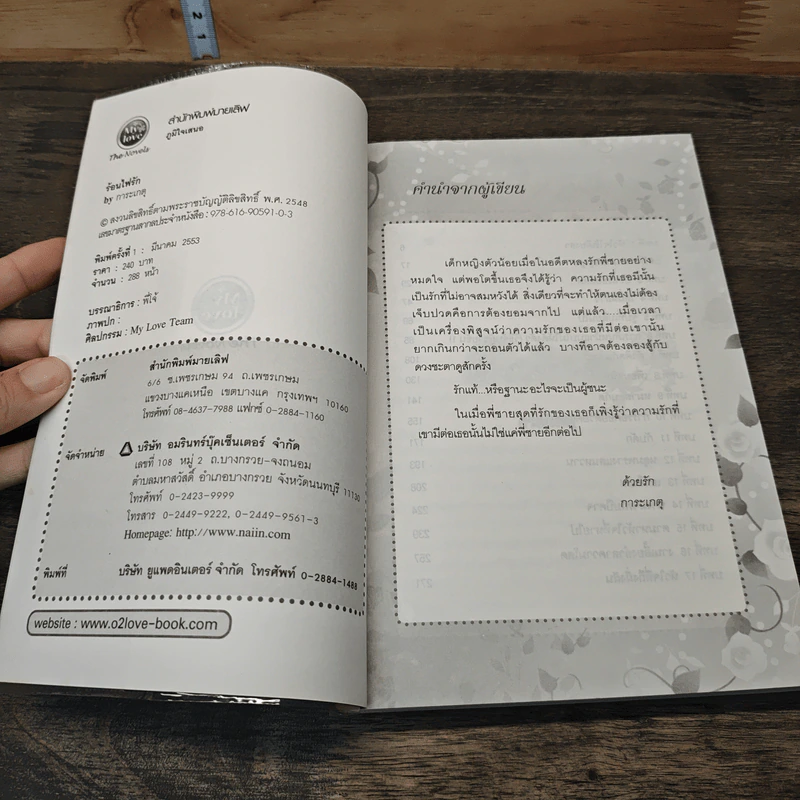 2 1
My love
The Novels
สำนักพิมพ์มายเลิฟ
ภูมิใจเสนอ
ร้อนไฟรัก
by การะเกตุ
© สงวนลิขสิทธิ์ตามพระราชบัญญัติลิขสิทธิ์ พ.ศ. 2548
เลขมาตรฐานสากลประจำหนังสือ : 978-616-90591-0-3
พิมพ์ครั้งที่ 1 : มีนาคม 2553
ราคา : 240 บาท
จำนวน : 288 หน้า
บรรณาธิการ : พี่โจ้
ภาพปก :
ศิลปกรรม : My Love Team
จัดพิมพ์ สำนักพิมพ์มายเลิฟ
6/6 ซ.เพชรเกษม 94 ถ.เพชรเกษม
แขวงบางแคเหนือ เขตบางแค กรุงเทพฯ 10160
โทรศัพท์ 08-4637-7988 แฟกซ์ 0-2884-1160
จัดจำหน่าย บริษัท อมรินทร์บุ๊คเซ็นเตอร์ จำกัด
เลขที่ 108 หมู่ 2 ถ.บางกรวย-จงถนอม
ตำบลมหาสวัสดิ์ อำเภอบางกรวย จังหวัดนนทบุรี 11130
โทรศัพท์ 0-2423-9999
โทรสาร 0-2449-9222, 0-2449-9561-3
Homepage: http://www.naiin.com
พิมพ์ที่ บริษัท ยูแพดอินเตอร์ จำกัด โทรศัพท์ 0-2884-1488
website : www.o2love-book.com
คำนำจากผู้เขียน
เด็กหญิงตัวน้อยเมื่อในอดีตหลงรักพี่ชายอย่าง
หมดใจ แต่พอโตขึ้นเธอจึงได้รู้ว่า ความรักที่เธอมีนั้น
เป็นรักที่ไม่อาจสมหวังได้ สิ่งเดียวที่จะทำให้ตนเองไม่ต้อง
เจ็บปวดคือการต้องยอมจากไป แต่แล้ว....เมื่อเวลา
เป็นเครื่องพิสูจน์ว่าความรักของเธอที่มีต่อเขานั้น
ยากเกินกว่าจะถอนตัวได้แล้ว บางทีอาจต้องลองสู้กับ
ดวงชะตาดูสักครั้ง
รักแท้...หรือฐานะอะไรจะเป็นผู้ชนะ
ในเมื่อพี่ชายสุดที่รักของเธอก็เพิ่งรู้ว่าความรักที่
เขามีต่อเธอนั้นไม่ใช่แค่พี่ชายอีกต่อไป
ด้วยรัก
การะเกตุ